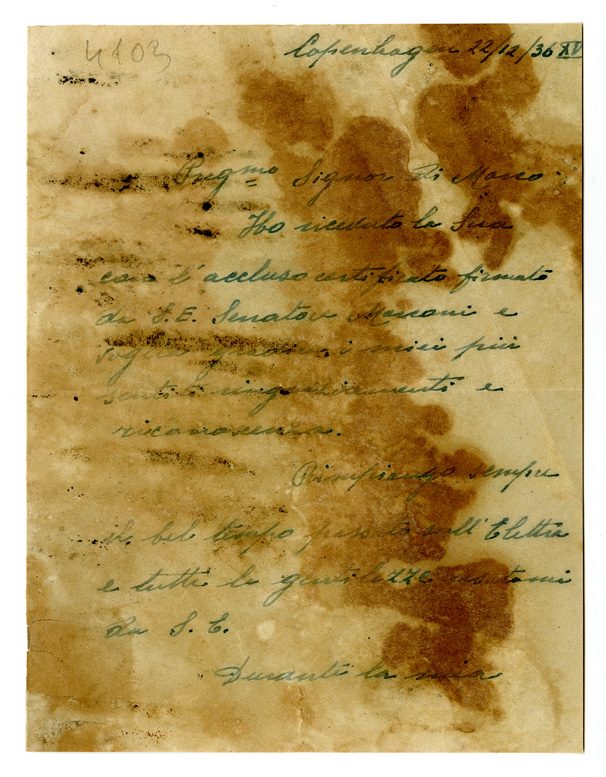 4103
Copenhagen 22/12/36 XV
Pregmo Signor Di Marco
Ho ricevuto la Sua
con l'accluso certificato firmato
da S.E. Senatore Marconi e
voglia gradire i miei più
sentiti ringraziamenti e
riconoscenza.
Rimpiango sempre
il bel tempo passato sull'Elettra
e tutte le gentilezze usatemi
da S.E.
Durante la mia